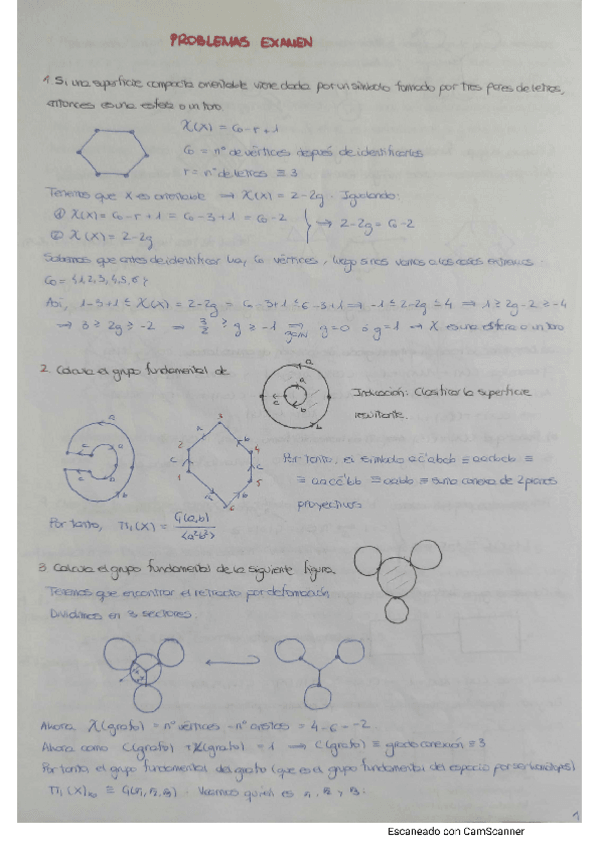 PROBLEMAS EXAMEN
1. Si una superficie compacta orientable viene dada por un símbolo formado por tres pares de letras,
entonces es una esfera o un toro.
χ(X) = C₀ - r + 1
C₀ = nº de vértices después de identificarlos
r = nº de letras ≡ 3
Tenemos que X es orientable → χ(X) = 2-2g. Igualando:
① χ(X) = C₀ - r + 1 = C₀ - 3 + 1 = C₀ - 2
② χ(X) = 2-2g
→ 2-2g = C₀-2
Sabemos que antes de identificar hay C₀ vértices, luego si nos vamos a los casos extremos
C₀ = {1,2,3,4,5,6}
Así, 1-3+1 ≤ χ(X) = 2-2g = C₀-3+1 ≤ 6-3+1 ⟹ -1 ≤ 2-2g ≤ 4 → 1 ≥ 2g-2 ≥ -4
→ 3 ≥ 2g ≥ -2 ⟹ 3/2 ≥ g ≥ -1 ⟹ g=0 ó g=1 → X es una esfera o un toro
2. Calcula el grupo fundamental de
Indicación: Clasificar la superficie
resultante.
Por tanto, el símbolo
≡ aabb ≡ suma conexa de 2 planos
proyectivos
Por tanto, Π₁(X) = G(a,b) / <a²b²>
3. Calcula el grupo fundamental de la siguiente figura.
Tenemos que encontrar el retracto por deformación
Dividimos en 3 sectores.
Ahora χ(grafo) = nº vértices - nº aristas = 4-6 = -2
Ahora como C(grafo) + χ(grafo) = 1 → C(grafo) ≡ grado conexión ≡ 3
Por tanto el grupo fundamental del grafo (que es el grupo fundamental del espacio por ser homótopos)
Veamos quién es
1
Escaneado con CamScanner